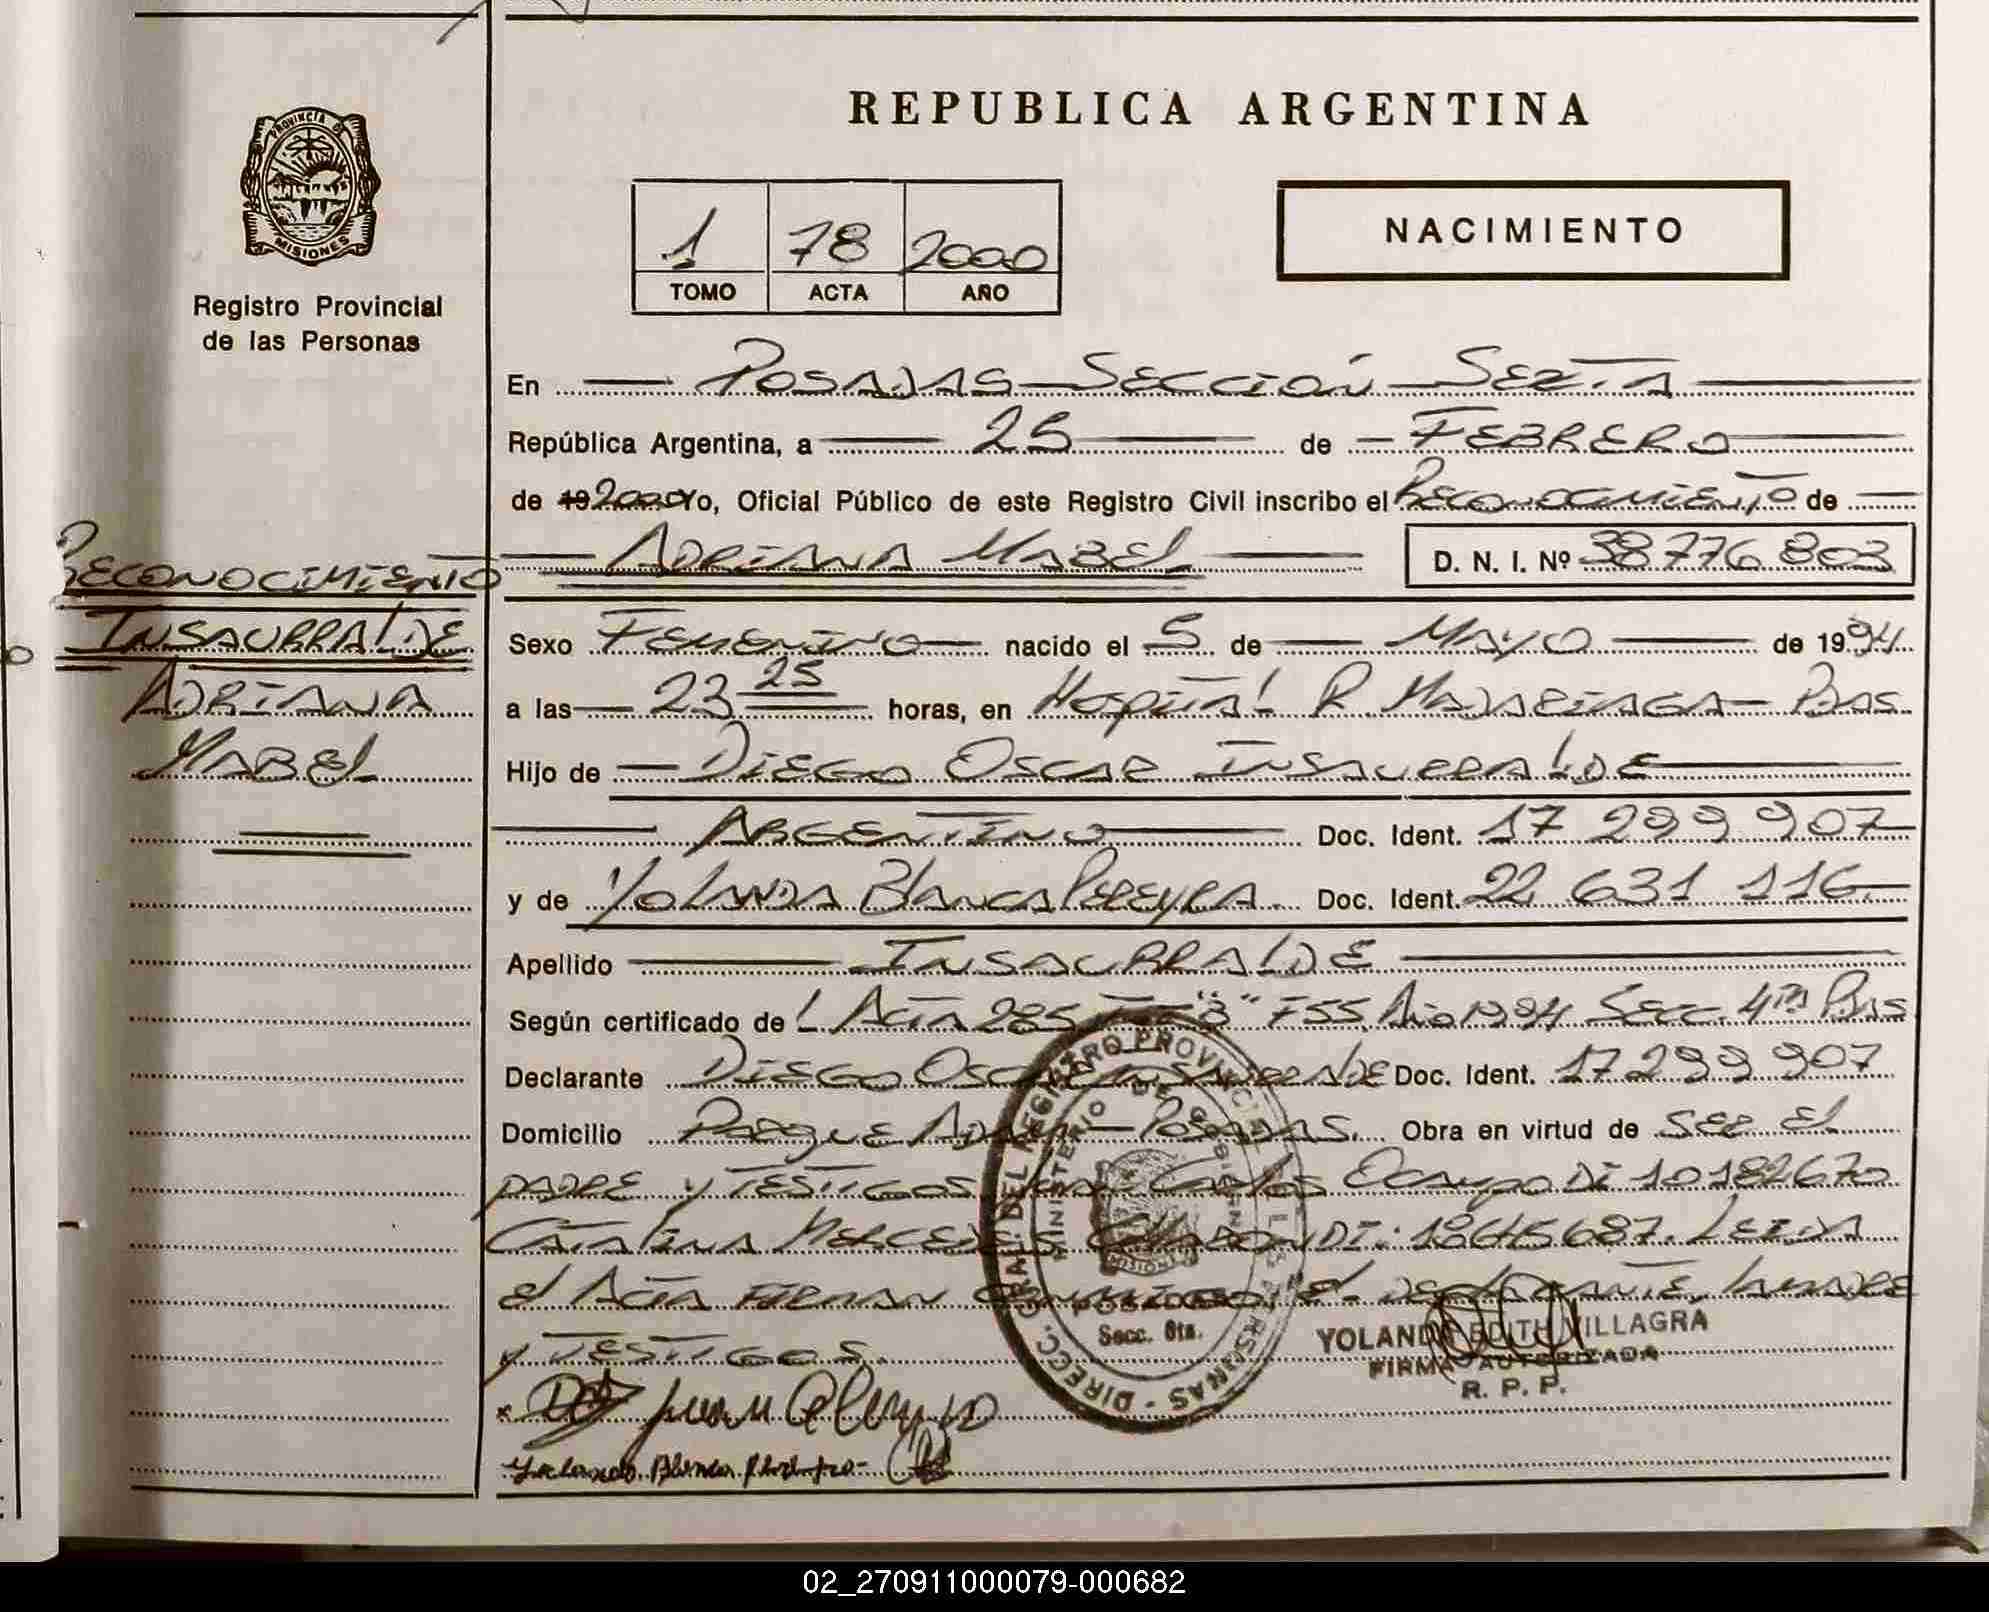 REPUBLICA ARGENTINA
PROVINCIA DE MISIONES
Registro Provincial
de las Personas
1 78 2000
TOMO ACTA AÑO
NACIMIENTO
En POSADAS SECCIÓN SEXTA
República Argentina, a 25 de FEBRERO
de 19 2000 Yo, Oficial Público de este Registro Civil inscribo el RECONOCIMIENTO de
ADRIANA MABEL D. N. I. Nº 38776803
RECONOCIMIENTO
INSAURRALDE
ADRIANA
MABEL
Sexo FEMENINO nacido el 5 de MAYO de 1994
a las 23 25 horas, en HOSPITAL R. MADARIAGA PDAS
Hijo de DIEGO OSCAR INSAURRALDE
ARGENTINO Doc. Ident. 17 299 907
y de YOLANDA BLANCA PEREYRA. Doc. Ident. 22 631 116
Apellido INSAURRALDE
Según certificado de ACTA 285 "B" F55 AÑO 1994 SECC. 4TA PDAS
Declarante DIEGO OSCAR INSAURRALDE Doc. Ident. 17 299 907
Domicilio PARQUE POSADAS. Obra en virtud de SER EL
PADRE Y TESTIGOS CARLOS OCAMPO DI 10182670
CATALINA MERCEDES DI: LEIDA
EL ACTA FIRMAN CONMIGO EL DECLARANTE, LA MADRE
Y TESTIGOS.
DIRECC. GRAL. DEL REGISTRO PROVINCIAL DE LAS PERSONAS
MINISTERIO DE GOBIERNO
MISIONES
POSADAS
Secc. 6ta.
YOLANDA EDITH VILLAGRA
FIRMA AUTORIZADA
R. P. P.
Juan
Yolanda Blanca
02_270911000079-000682